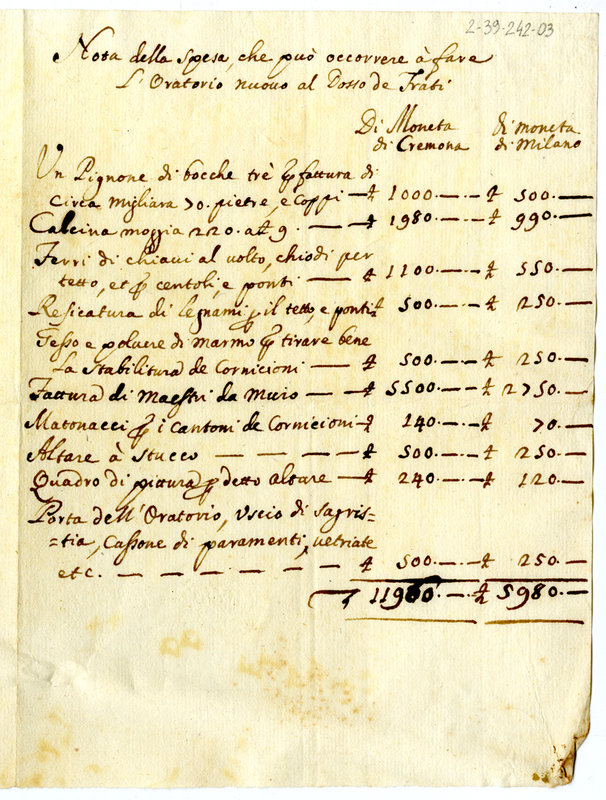 2-39-242-03
Nota della spesa, che può occorrere à fare
L'Oratorio nuovo al Dosso de Frati
Di Moneta di moneta
di Cremona di Milano
Un Pignone di bocche trè ꝑ fattura di
circa migliara 70. pietre, e coppi — ₤ 1000.—-— ₤ 500.—
Calcina moggia 220. a ₤ 9. — ₤ 1980.—-— ₤ 990.—
Ferri di chiavi al volto, chiodi per
tetto, et ꝑ centoli, e ponti — ₤ 1100.—-— ₤ 550.—
Resicatura di legnami ꝑ il tetto, e ponti ₤ 500.—-— ₤ 250.—
Gesso e polvere di marmo ꝑ tirare bene
La stabilitura de Cornicioni — ₤ 500.—-— ₤ 250.—
Fattura di Maestri da Muro — ₤ 5500.—-— ₤ 2750.—
Matonacci ꝑ i cantoni de Cornicioni ₤ 140.—-— ₤ 70.—
Altare à stucco — — — — ₤ 500.—-— ₤ 250.—
Quadro di pittura ꝑ detto altare — ₤ 240.—-— ₤ 120.—
Porta dell'Oratorio, Uscio di sagris=
=tia, Cassone di paramenti, vetriate
etc. — — — — — — ₤ 500.—-— ₤ 250.—
11960.—-— ₤ 5980.—